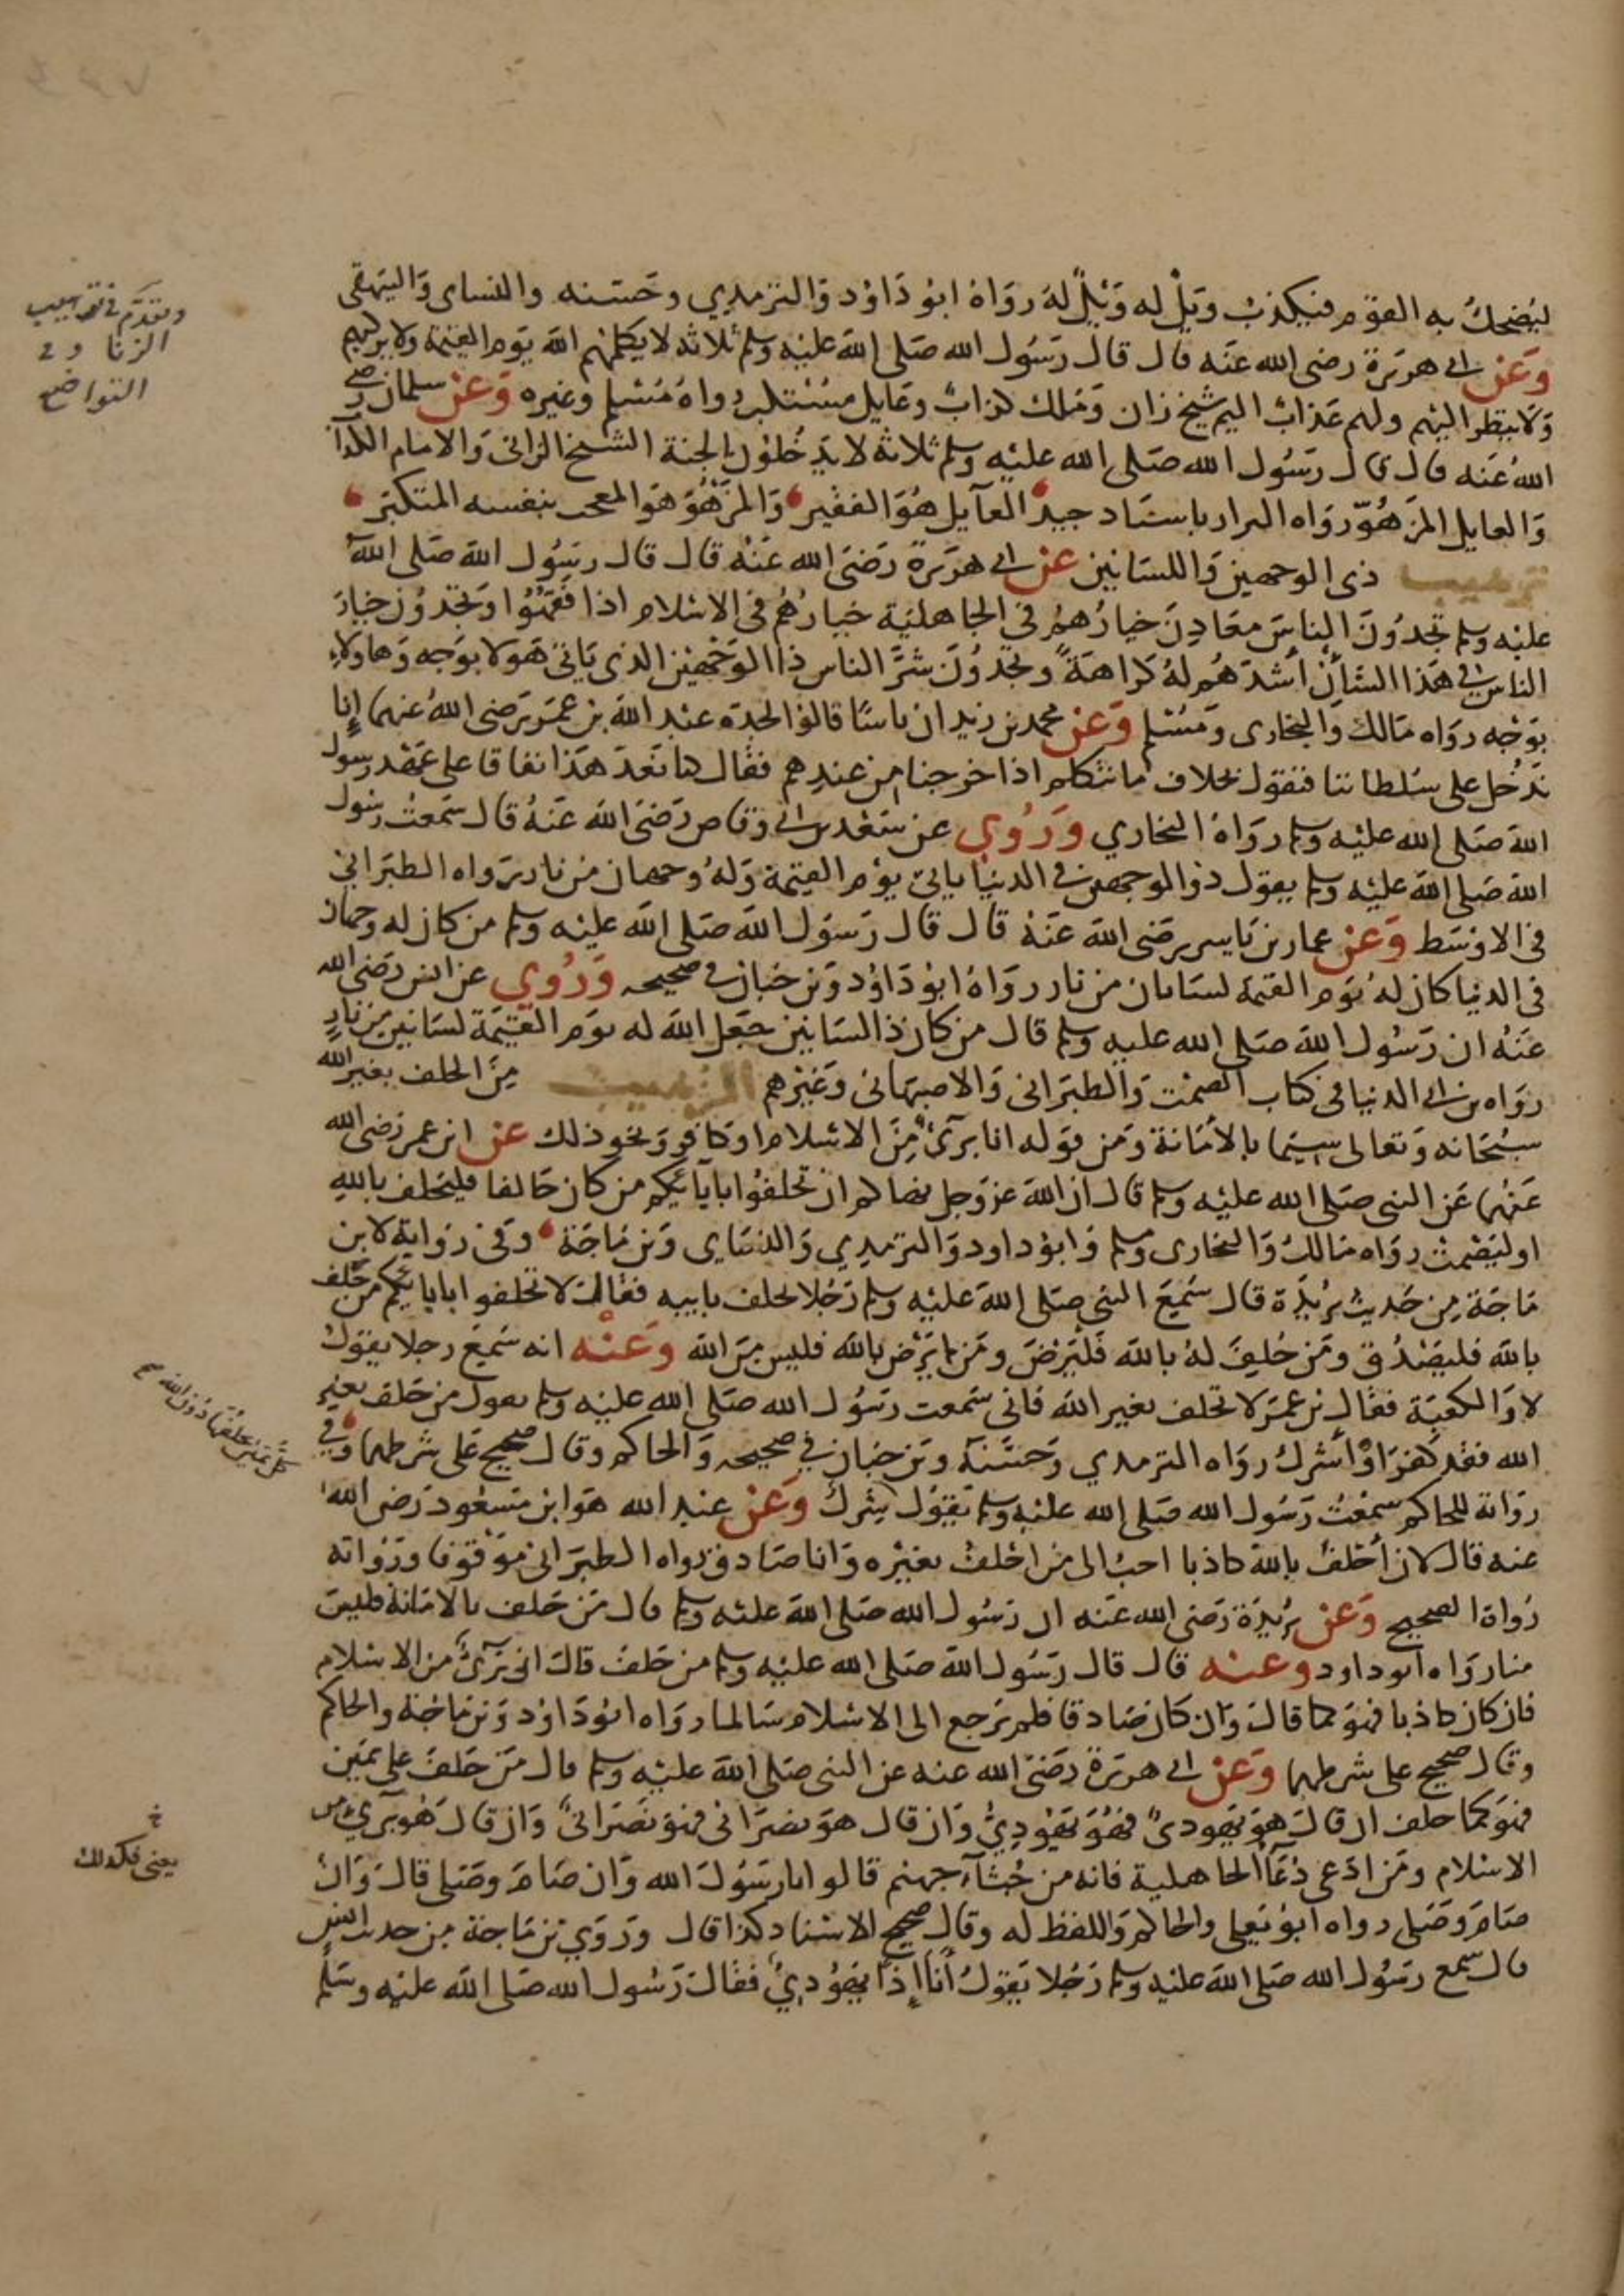 ليضحك به القوم فيكذب ويل له ويل له رواه ابو داود والترمذي وحسنه والنساى والبيهقى
وعن ابى هريرة رضى الله عنه قال قال رسول الله صلى الله عليه وسلم ثلاثة لا يكلمهم الله يوم القيمة ولا يزكيهم
ولا ينظر اليهم ولهم عذاب اليم شيخ زان وملك كذاب وعايل مستكبر رواه مسلم وغيره وعن سلمان رضى
الله عنه قال قال رسول الله صلى الله عليه وسلم ثلاثة لا يدخلون الجنة الشيخ الزانى والامام الكذاب
والعايل المزهو رواه البزار باسناد جيد العآيل هو الفقير والمزهو هو المعجب بنفسه المتكبر
ترهيب ذى الوجهين واللسانين عن ابى هريرة رضى الله عنه قال قال رسول الله صلى الله
عليه وسلم تجدون الناس معادن خيارهم في الجاهلية خيارهم فى الاسلام اذا فقهوا وتجدون خيار
الناس فى هذا الشان أشدهم له كراهة وتجدون شر الناس ذا الوجهين الذى ياتى هولا بوجه وهاولاء
بوجه رواه مالك والبخارى ومسلم وعن محمد بن زيد ان ناسا قالوا لجده عبد الله بن عمر رضى الله عنهما إنا
ندخل على سلطاننا فنقول بخلاف ما نتكلم اذا خرجنا من عندهم فقال كنا نعد هذا نفاقا على عهد رسول
الله صلى الله عليه وسلم رواه البخاري وروي عن سعد بن ابى وقاص رضى الله عنه قال سمعت رسول
الله صلى الله عليه وسلم يقول ذو الوجهين فى الدنيا ياتى يوم القيمة وله وجهان من نار رواه الطبرانى
فى الاوسط وعن عمار بن ياسر رضى الله عنه قال قال رسول الله صلى الله عليه وسلم من كان له وجهان
فى الدنيا كان له يوم القيمة لسانان من نار رواه ابو داود وبن حبان فى صحيحه وروي عن انس رضى الله
عنه ان رسول الله صلى الله عليه وسلم قال من كان ذا لسانين جعل الله له يوم القيمة لسانين من نار
رواه بن ابى الدنيا فى كتاب الصمت والطبرانى والاصبهانى وغيرهم الترهيب من الحلف بغير الله
سبحانه وتعالى سيما بالأمانة ومن قوله انا برئ من الاسلام او كافر ونحو ذلك عن ابن عمر رضى الله
عنهما عن النبى صلى الله عليه وسلم قال ان الله عز وجل ينهاكم ان تحلفوا بآبائيكم من كان حالفا فليحلف بالله
او ليصمت رواه مالك والبخارى ومسلم وابو داود والترمذي والنساى وبن ماجة وفى رواية لابن
ماجة من حديث بريدة قال سمع النبى صلى الله عليه وسلم رجلا يحلف بابيه فقال لا تحلفوا ابابائيكم من حلف
بالله فليصدق ومن حلف له بالله فليرض ومن لم يرض بالله فليس من الله وعنه انه سمع رجلا يقول
لا والكعبة فقال بن عمر لا تحلف بغير الله فانى سمعت رسول الله صلى الله عليه وسلم يقول من حلف بغير
الله فقد كفر او أشرك رواه الترمدي وحسنه وبن حبان في صحيحه والحاكم وقال صحيح على شرطهما وفي
رواية للحاكم سمعت رسول الله صلى الله عليه وسلم يقول شرك وعن عبد الله هو ابن مسعود رضى الله
عنه قال لان أحلف بالله كاذبا احب الى من احلف بغيره وانا صادق رواه الطبرانى موقوفا ورواته
رواة الصحيح وعن بريدة رضى الله عنه ان رسول الله صلى الله عليه وسلم قال من حلف بالامانة فليس
منا رواه ابو داود وعنه قال قال رسول الله صلى الله عليه وسلم من حلف قال انى برئ من الاسلام
فان كان كاذبا فهو كما قال وان كان صادقا فلم يرجع الى الاسلام سالما رواه ابو داود وبن ماجة والحاكم
وقال صحيح على شرطهما وعن ابى هريرة رضى الله عنه عن النبى صلى الله عليه وسلم قال من حلف على يمين
فهو كما حلف ان قال هو يهودى فهو يهودي وان قال هو نصرانى فهو نصرانى وان قال هو برئ من
الاسلام ومن ادعى دعآ الجاهلية فانه من جثآء جهنم قالوا يا رسول الله وان صام وصلى قال وان
صام وصلى رواه ابو يعلى والحاكم واللفظ له وقال صحيح الاسناد كذا قال وروي بن ماجة من حديث انس
قال سمع رسول الله صلى الله عليه وسلم رجلا يقول أنا إذا يهودي فقال رسول الله صلى الله عليه وسلم
وتقدم في ترهيب
الزنا وفى
التواضع
كل يمين يحلف بها دون الله
خ
يعنى فكذلك